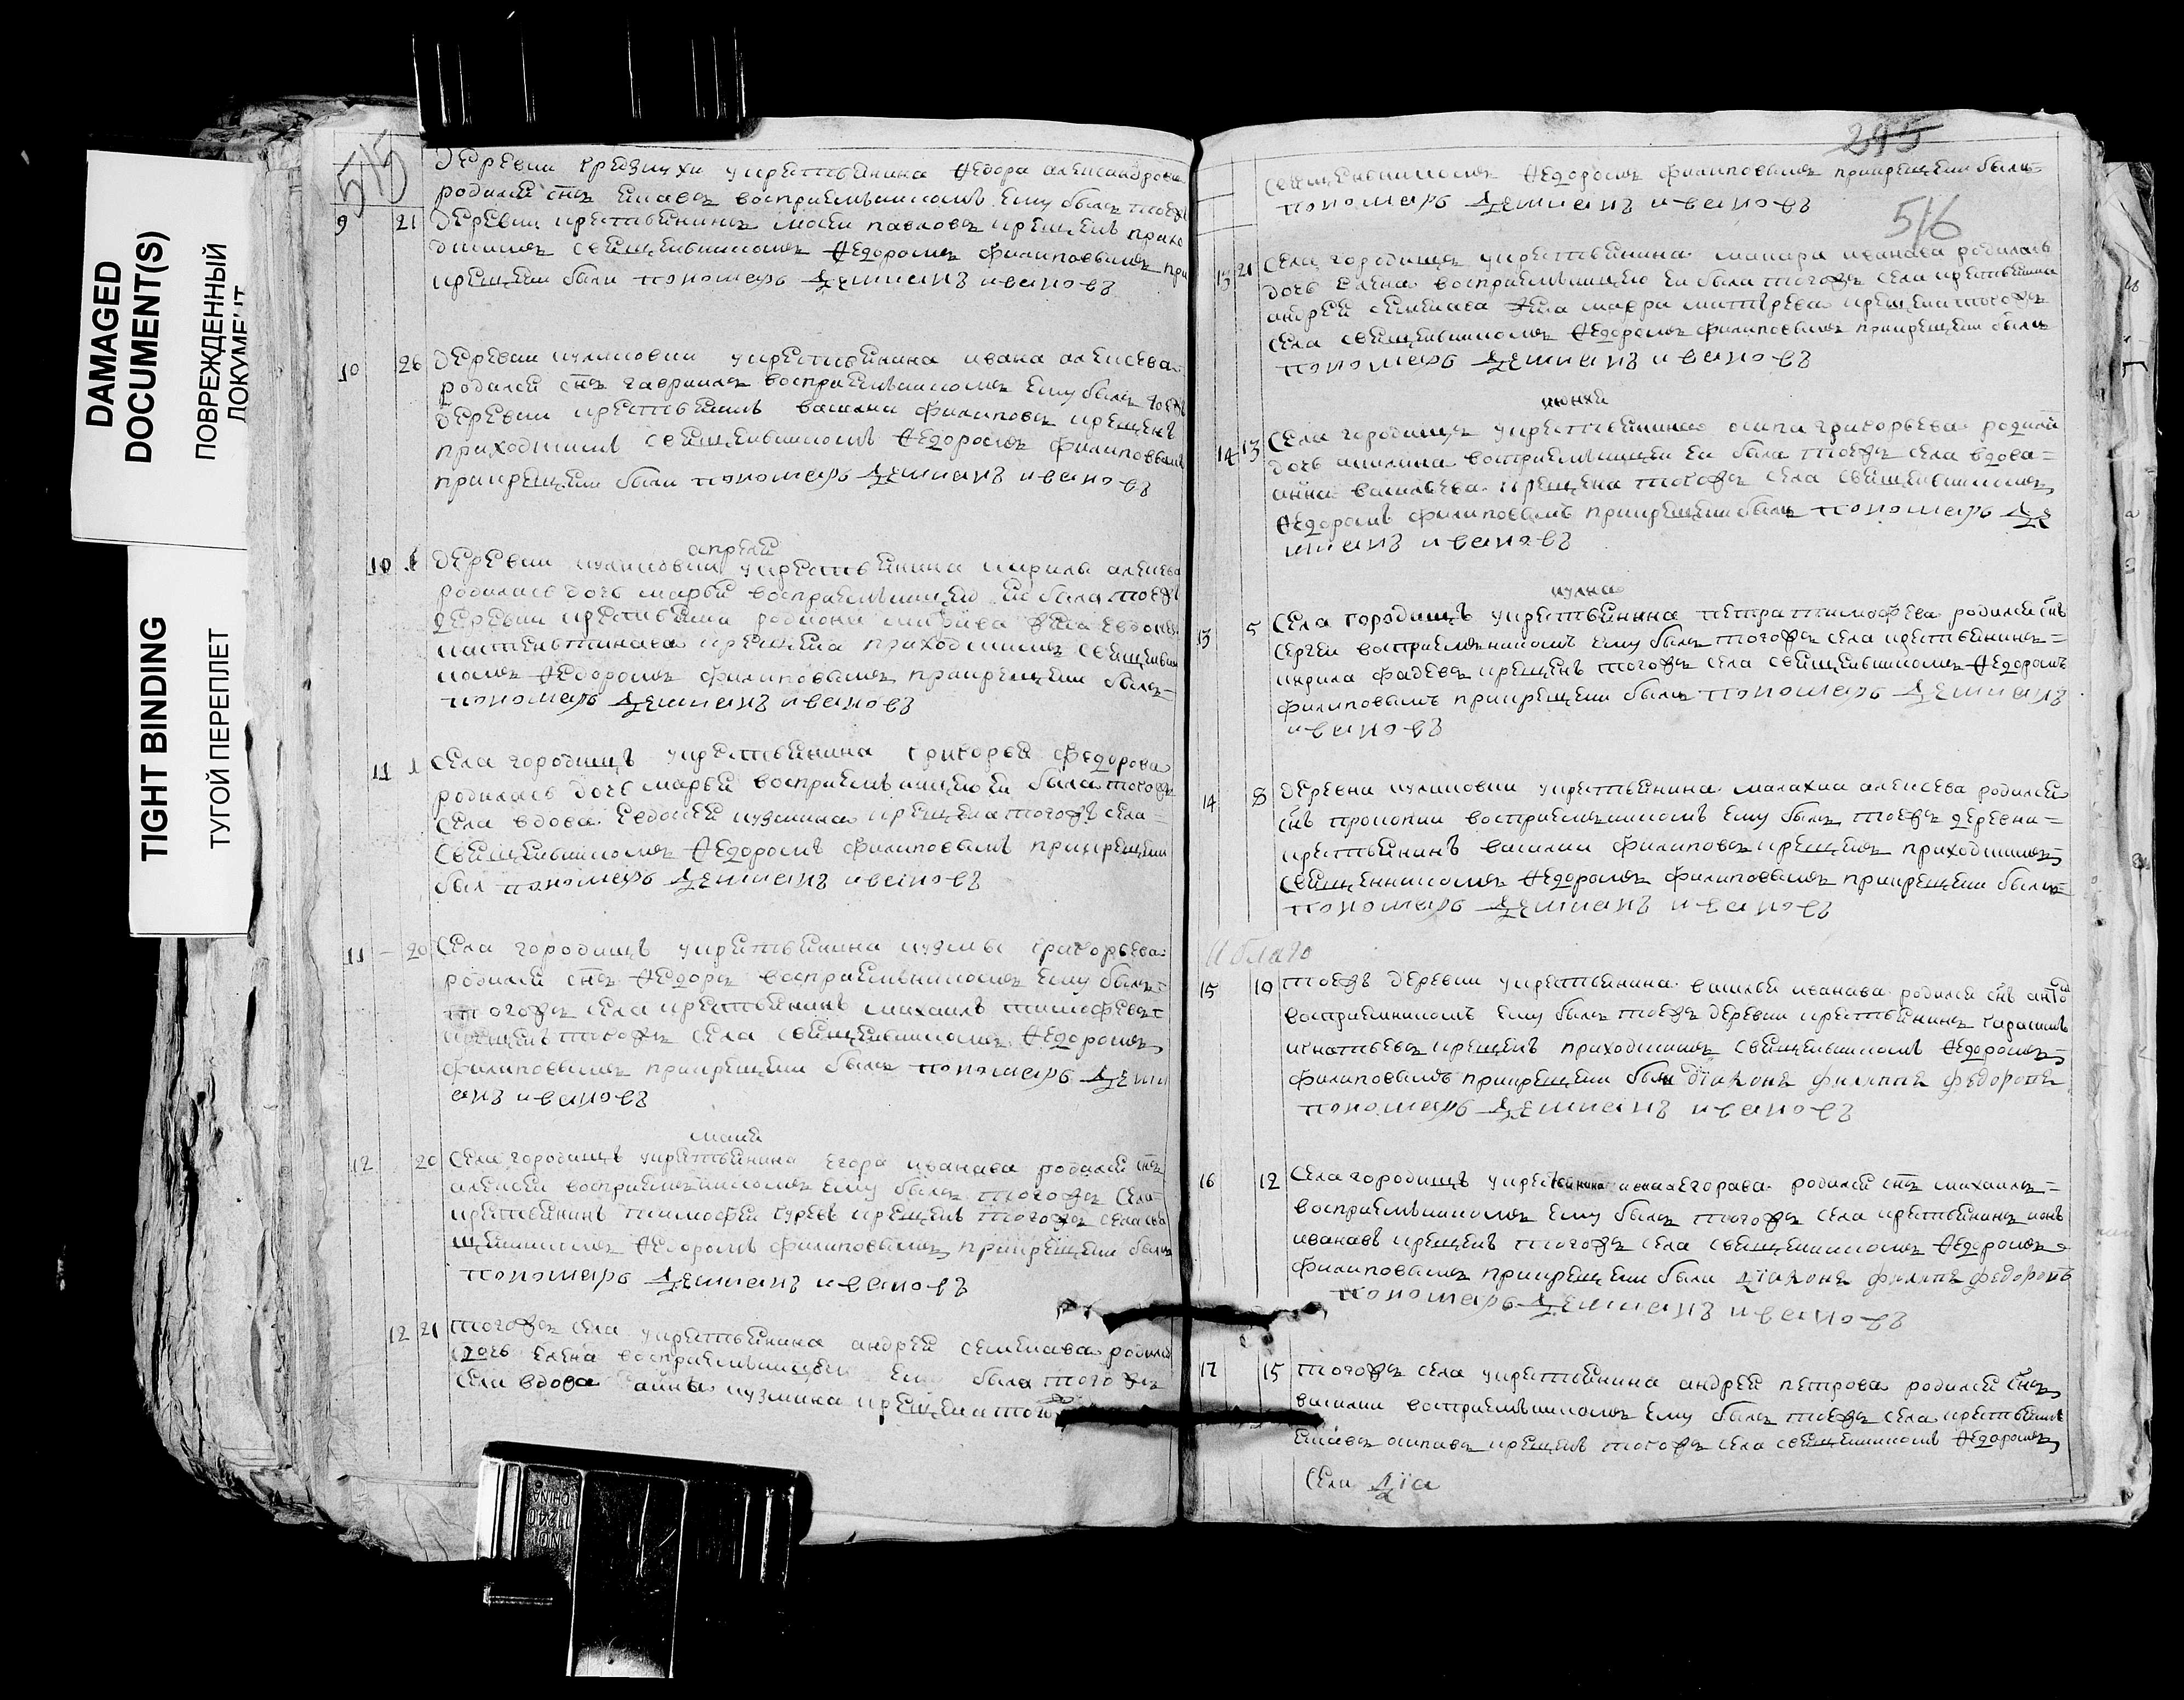 DAMAGED
DOCUMENT(S)
ПОВРЕЖДЕННЫЙ
ДОКУМЕНТ
TIGHT BINDING
ТУГОЙ ПЕРЕПЛЕТ
515
деревни укрестьянина Ѳедора александрова
родился снъ восприемьникомъ ему былъ тоеж
9 21 деревни крестьянинъ павловъ крещенъ прихо
цкимъ свящѣньникомъ Ѳедоромъ филиповымъ при
крещени были пономарь Демианъ ивановъ
10 26 деревни куликовки укрестьянина ивана алексева
родился снъ гавриилъ восприемьникомъ ему былъ тоеж
деревни крестьянинъ василии филиповъ крещенъ
приходцкимъ свящѣньникомъ Ѳедоромъ филиповымъ
прикрещени были пономарь Демианъ ивановъ
апреля
10 1 деревни куликовки укрестьянина кирилы алексева
родилась дочь марья восприемьницею ей была тоеж
деревни крестьянина родиона жена евдокия
крещена приходцкимъ свящѣньни
комъ Ѳедоромъ филиповымъ прикрещени былъ
пономарь Демианъ ивановъ
11 1 Села городищъ укрестьянина григорья федорова
родилась дочь марья восприемьницею ей была тогожъ
села вдова евдокея кузмина крещена тогожъ села
свящѣньникомъ Ѳедоромъ филиповымъ прикрещени
был пономарь Демианъ ивановъ
11 20 Села городищъ укрестьянина кузмы григорьева
родился снъ Ѳедоръ восприемьникомъ ему былъ
тогожъ села крестьянинъ михаилъ тимофеевъ
крещенъ тогожъ села свящѣньникомъ Ѳедоромъ
филиповымъ прикрещени былъ пономарь Деми
анъ ивановъ
маия
12 20 Села городищъ укрестьянина егора иванава родился снъ
алексеи восприемъникомъ ему былъ тогожъ села
крестьянинъ тимофеи гурьевъ крещенъ тогожъ села свя
щенникомъ Ѳедоромъ филиповымъ прикрещени былъ
пономарь Демианъ ивановъ
12 21 тогожъ села укрестьянина андрея семенава родилас
дочь елена восприемьницею ей была тогожъ
села вдова анна кузмина крещена того
295
516
свящѣньникомъ Ѳедоромъ филиповымъ прикрещени были
пономарь Демианъ ивановъ
13 21 Села городищъ укрестьянина макара иванава родилась
дочь елена восприемьницею ей была тогожъ села крестьянина
андрея семенава жена мавра крещена тогожъ
села свящѣньникомъ Ѳедоромъ филиповымъ прикрещени были
пономарь Демианъ ивановъ
июния
14 13 Села городищъ укрестьянина осипа григорьева родилас
дочь акилина восприемьницеи ей была тоежъ села вдова
анна васильева крещена тогожъ села свящѣньникомъ
Ѳедоромъ филиповымъ прикрещени былъ пономарь Де
мианъ ивановъ
иулиа
13 5 Села городищъ укрестьянина петра тимофева родился снъ
сергеи восприемъникомъ ему былъ тогожъ села крестьянинъ
кирила фадеевъ крещенъ тогожъ села свящѣньникомъ Ѳедоромъ
филиповымъ прикрещени былъ пономарь Демианъ
ивановъ
14 8 деревна куликовки укрестьянина малахиа алексева родился
снъ прокопии восприемъникомъ ему былъ тоежъ деревна
крестьянинъ василии филиповъ крещенъ приходцкимъ
свящѣнникомъ Ѳедоромъ филиповымъ прикрещени былъ
пономарь Демианъ ивановъ
15 10 тоежъ деревни укрестьянина василья иванава родился снъ
восприемникомъ ему былъ тоежъ деревни крестьянинъ гарасимъ
игнатьевъ крещенъ приходцкимъ свящѣньникомъ Ѳедоромъ
филиповымъ прикрещени были диаконъ филиппъ федоровъ
пономарь Демианъ ивановъ
16 12 Села городищъ укрестьянина егорава родился снъ михаилъ
восприемьникомъ ему былъ тогожъ села крестьянинъ
иванавъ крещенъ тогожъ села свящѣнникомъ Ѳедоромъ
филиповымъ прикрещени были диаконъ филипъ федоровъ
пономарь Демианъ ивановъ
17 15 тогожъ села укрестьянина андрея петрова родился снъ
василии восприемьникомъ ему былъ тоежъ села крестьянинъ
осипавъ крещенъ тогожъ села свящѣнникомъ Ѳедоромъ
Села Диа